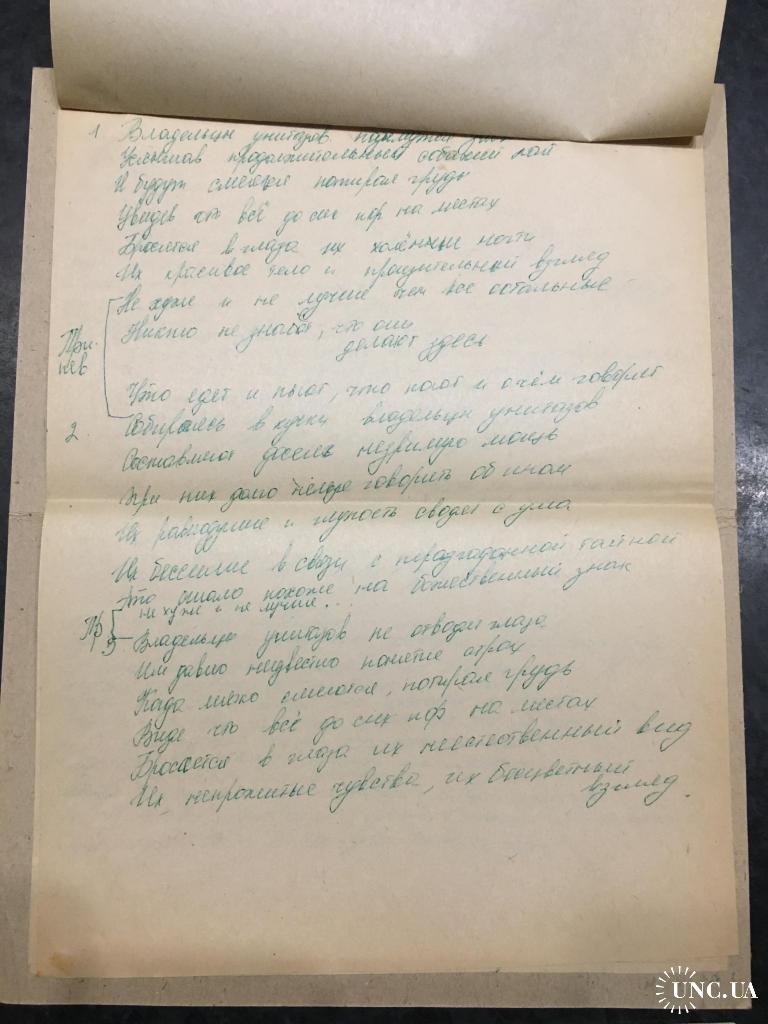 1 Владельцы унитазов
Услышав продолжительный собачий лай
И будут смеяться потирая грудь
Увидев что всё до сих пор на местах
Бросится в глаза их холёные ногти
Их красивое тело и пронзительный взгляд
Не хуже и не лучше чем все остальные
Никто не знает, что они
делают здесь
При-
пев
Что едят и пьют, что поют и о чём говорят
2 Собираясь в кучки владельцы унитазов
Составляют незримую мощь
При них говорить об ином
Их равнодушие и глупость сводят с ума
Их бессилие в связи с неразгаданной тайной
Это похоже на божественный знак
Пр не хуже и не лучше...
3 Владельцы унитазов не отводят глаза
Им давно неизвестно понятие страх
Когда смеются, потирая грудь
Видя что всё до сих пор на местах
Бросается в глаза их неестественный вид
Их непрожитые чувства, их бесцветный
взгляд.
UNC.UA